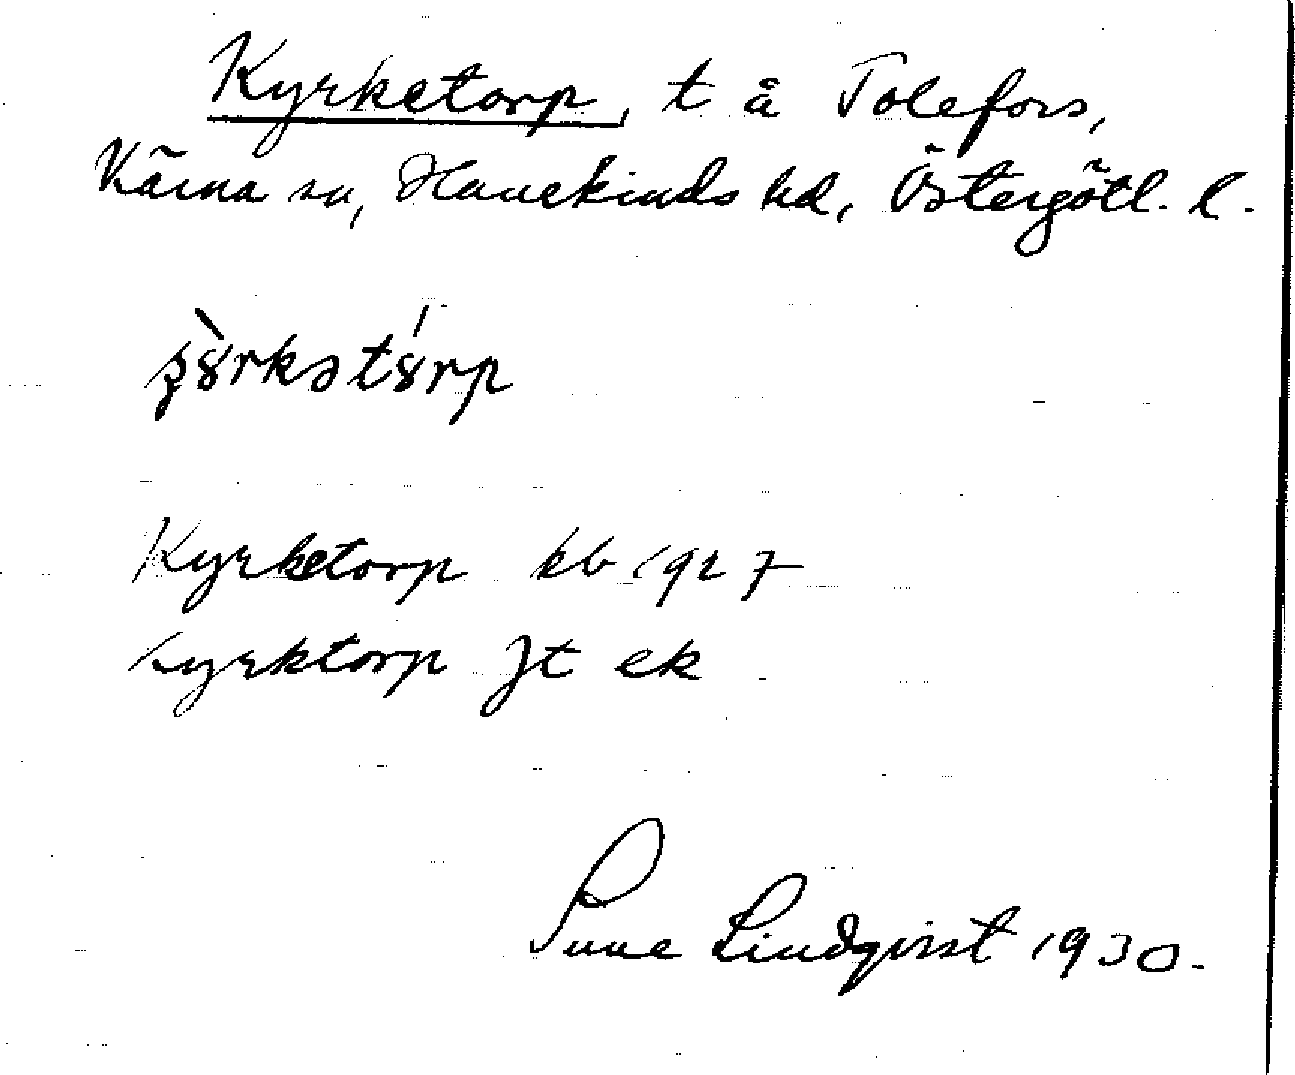 Kyrketorp, t å Tolefors,
Kärna sn, Hanekinds hd, Östergötl. l.
Kyrketorp kb 1927
Kyrktorp Jt ek
Sune Lindqvist 1930.